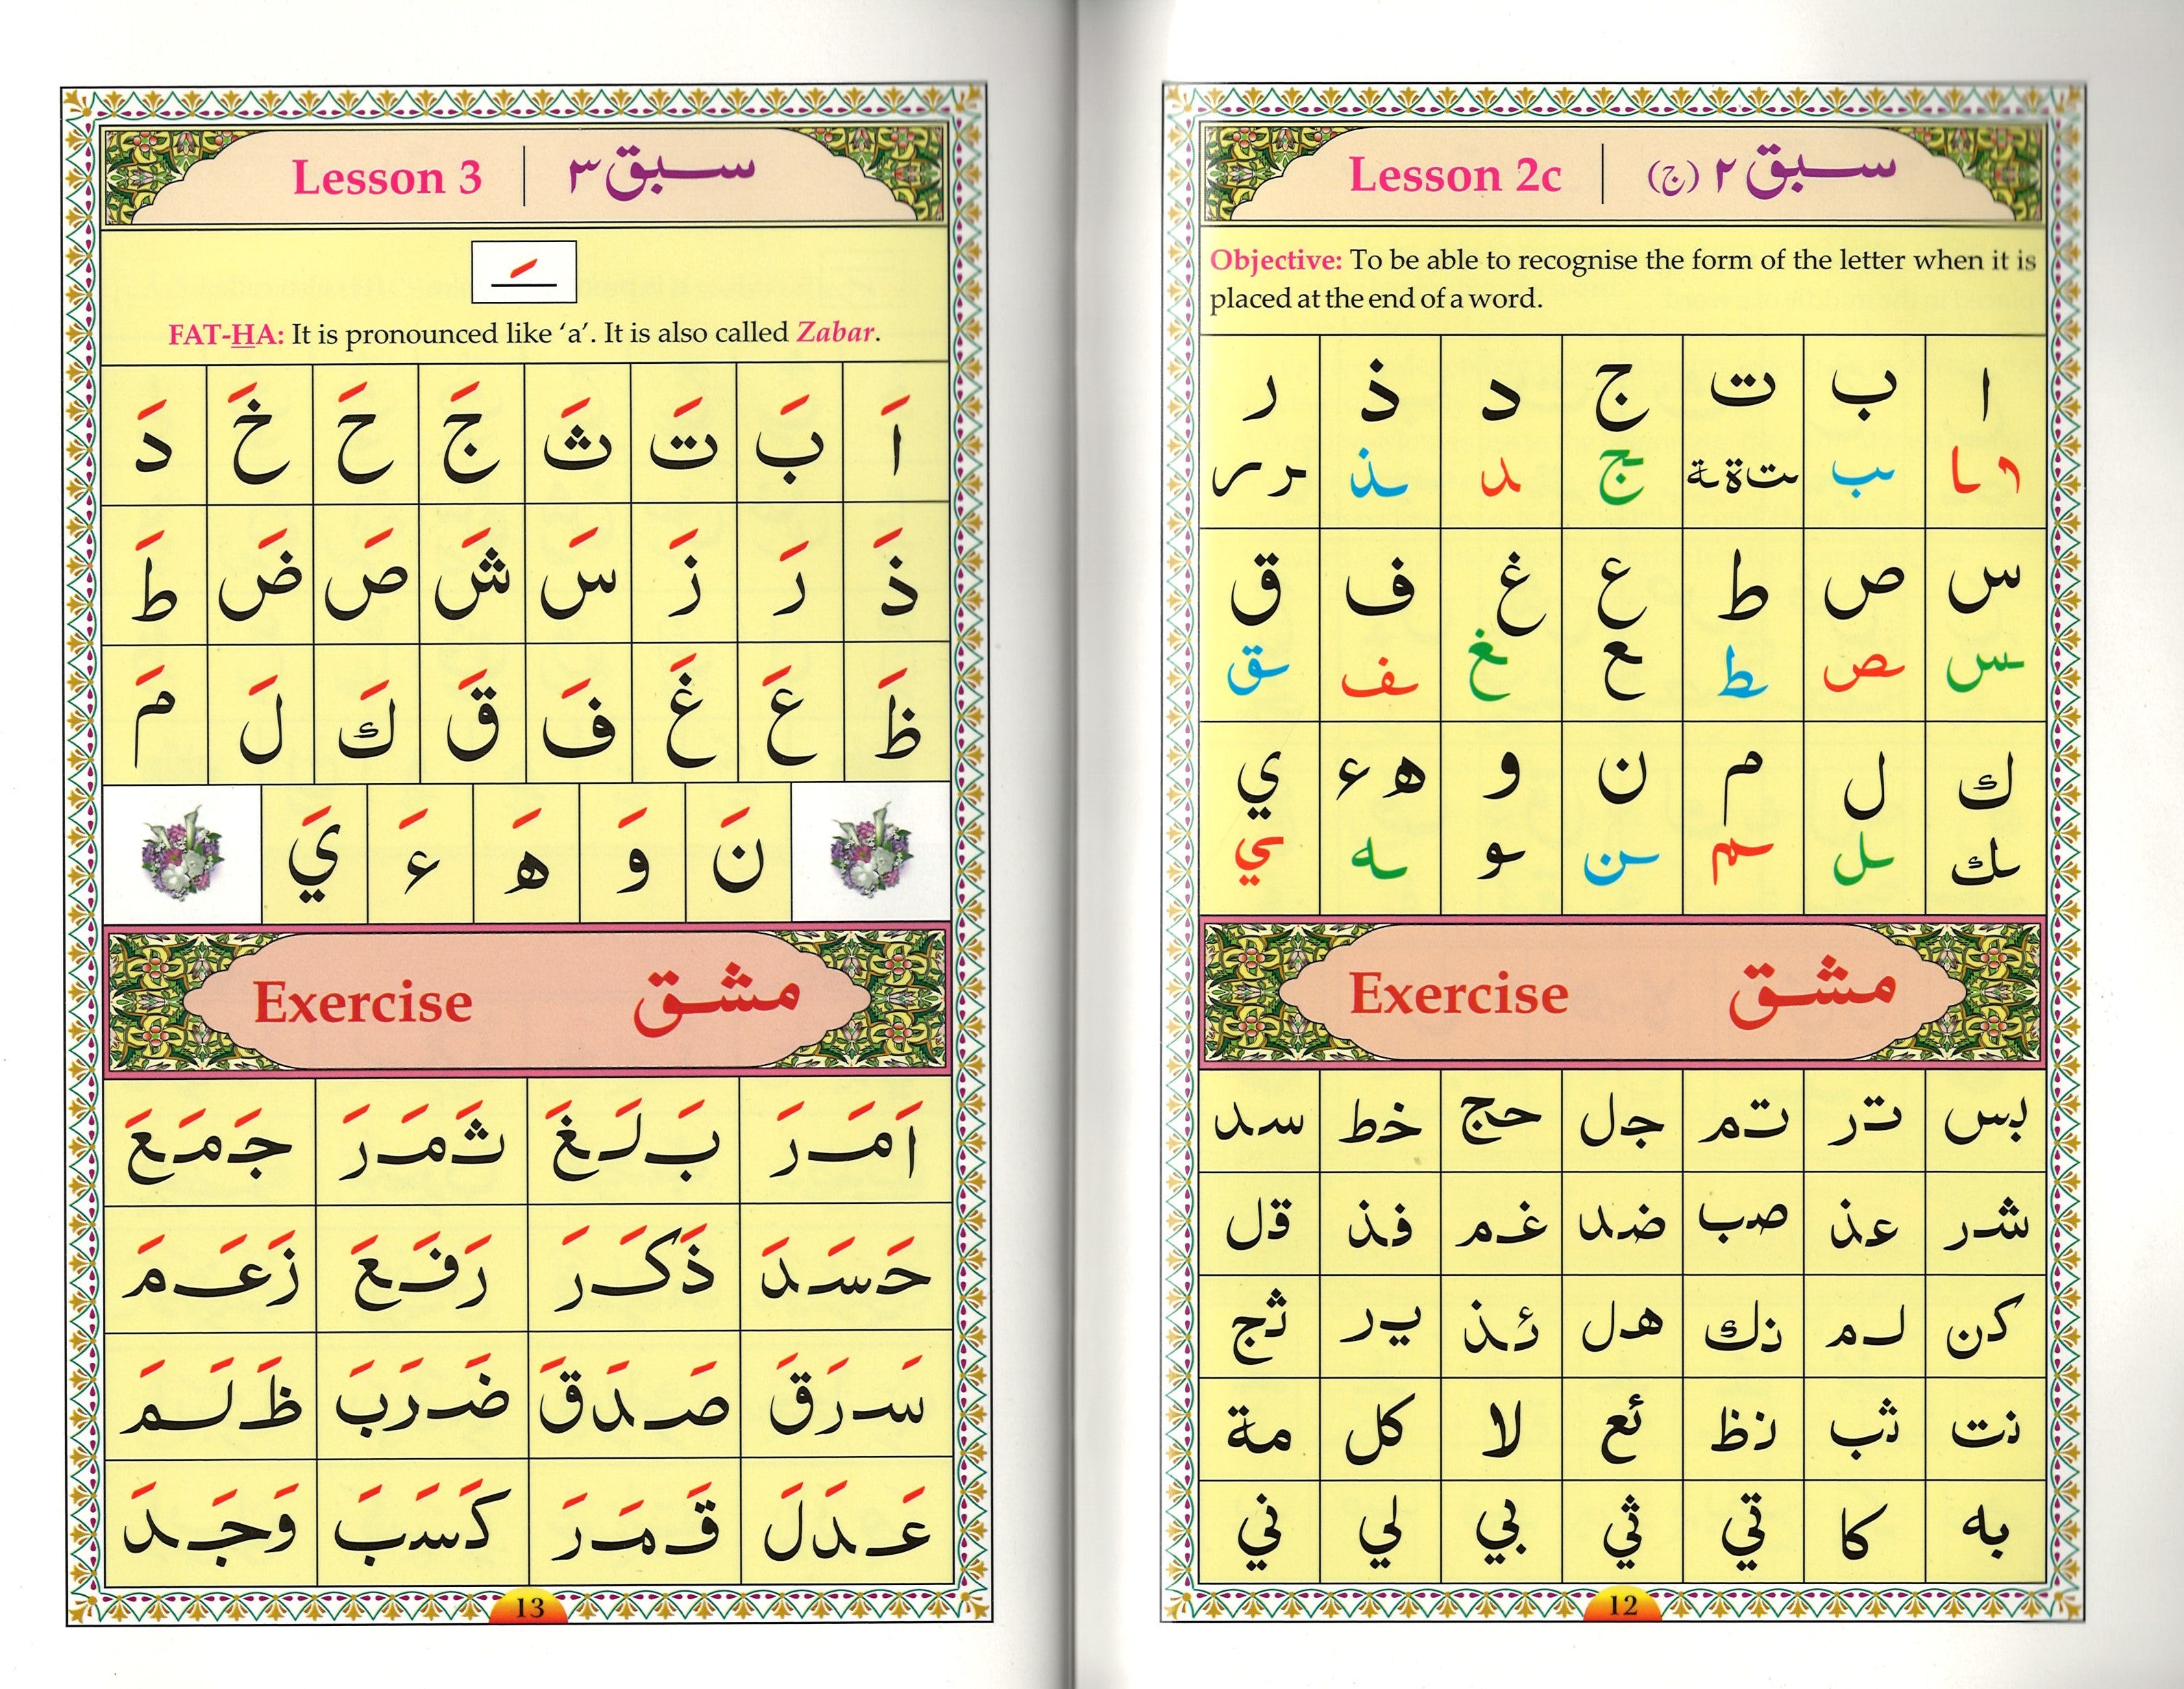 Lesson 2c | سبق ٢ (ج)
Objective: To be able to recognise the form of the letter when it is
placed at the end of a word.
ا ب ت ج د ذ ر
ا ـا ـب ـت ـة ة ـج ـد ـذ ـر ـر
س ص ط ع غ ف ق
ـس ـص ـط ـع ـغ ـف ـق
ك ل م ن و ه ء ي
ـك ـل ـم ـن ـو ـه ـي
Exercise مشق
بس تر تم جل حج خط سد
شر عذ صب ضد غم فذ قل
كن لم نك هل ئذ ير ثج
نت ثب نظ ئع لا كل مة
به كا تي ثي بي لي ني
12
Lesson 3 | سبق ٣
ـَ
FAT-HA: It is pronounced like ‘a’. It is also called Zabar.
اَ بَ تَ ثَ جَ حَ خَ دَ
ذَ رَ زَ سَ شَ صَ ضَ طَ
ظَ عَ غَ فَ قَ كَ لَ مَ
نَ وَ هَ ءَ يَ
Exercise مشق
اَمَرَ بَلَغَ ثَمَرَ جَمَعَ
حَسَدَ ذَكَرَ رَفَعَ زَعَمَ
سَرَقَ صَدَقَ ضَرَبَ ظَلَمَ
عَدَلَ قَمَرَ كَسَبَ وَجَدَ
13